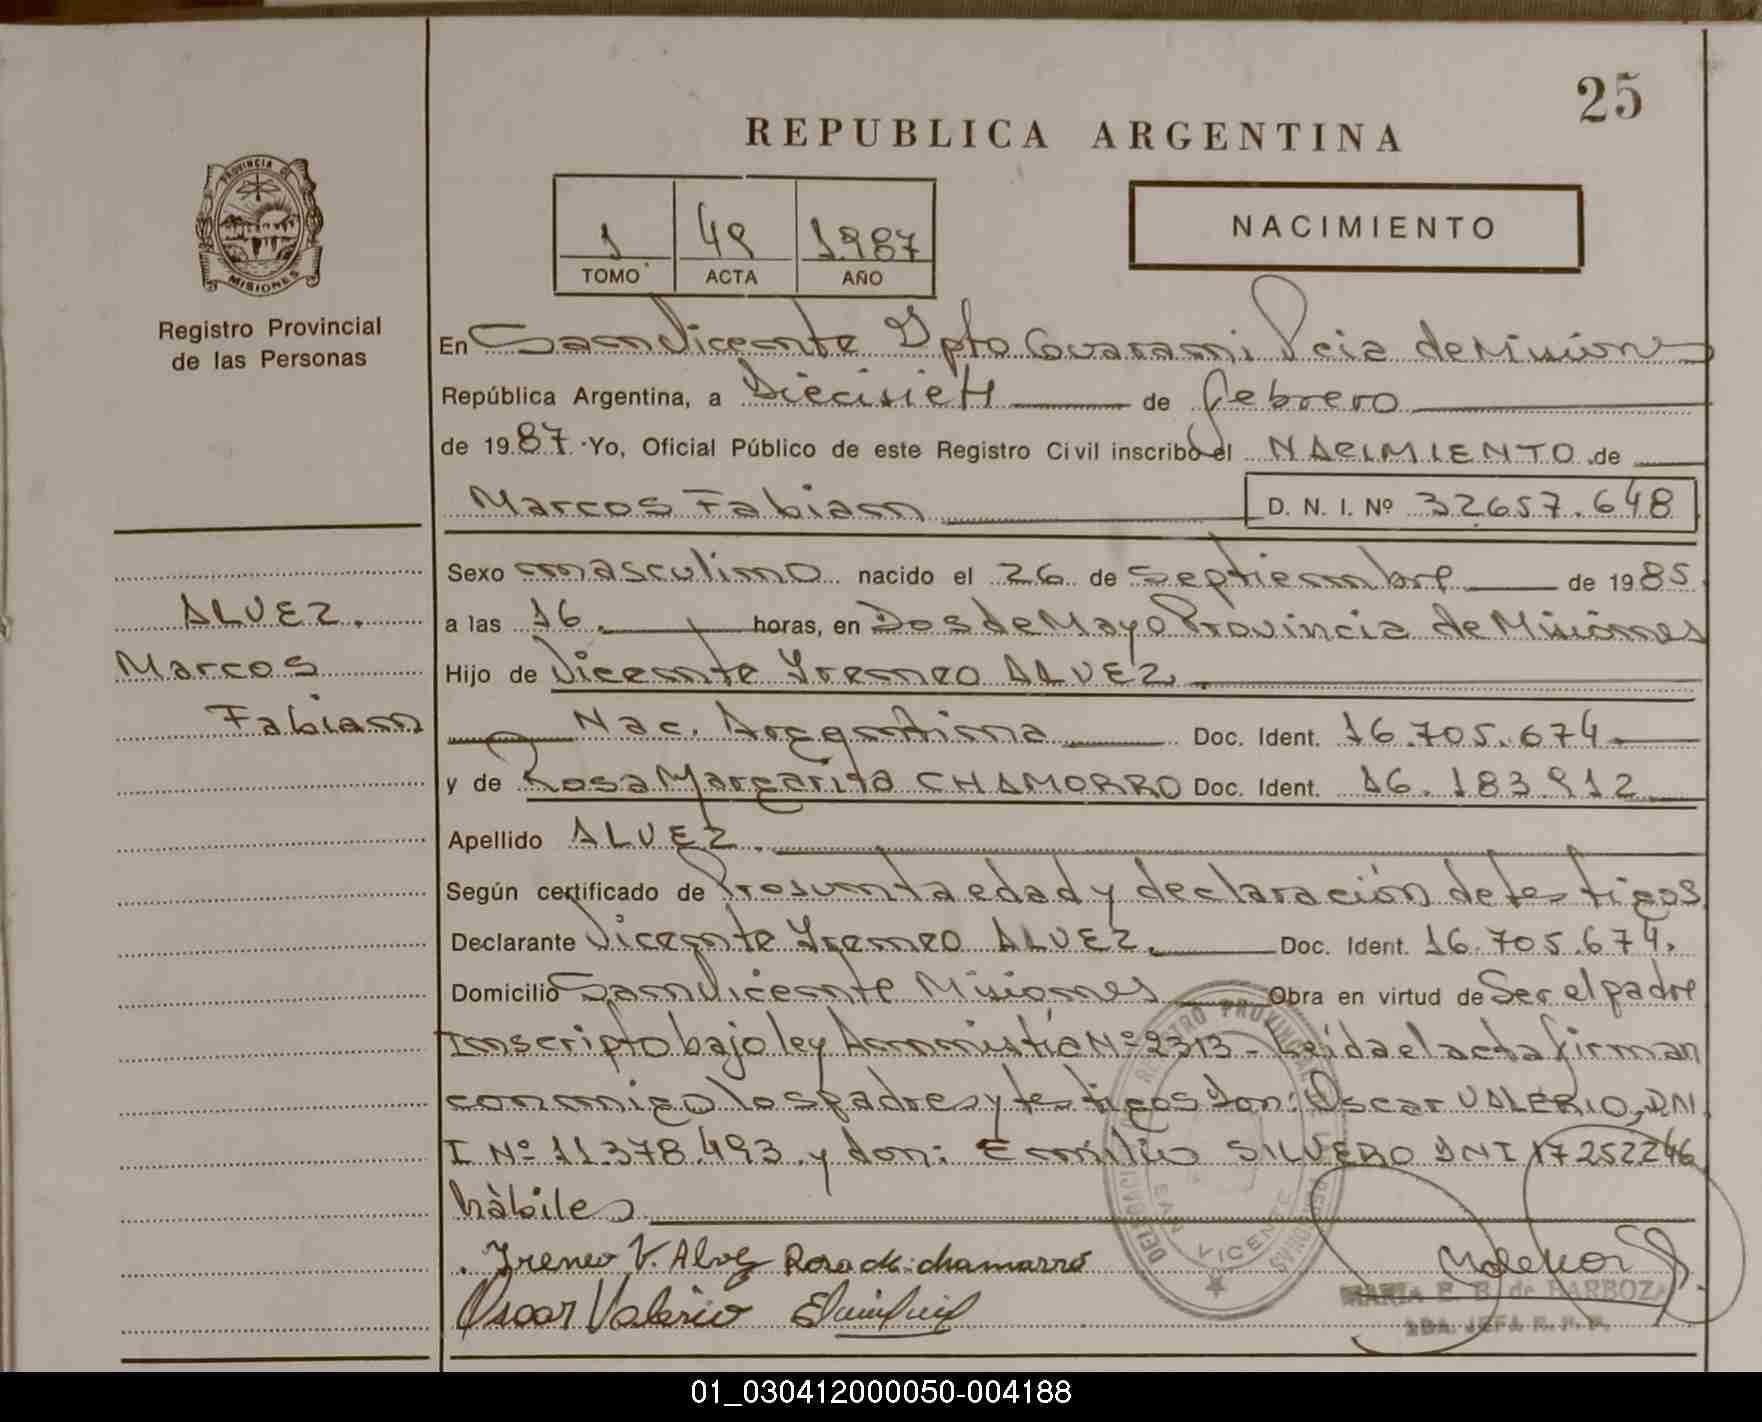 25
REPUBLICA ARGENTINA
PROVINCIA DE
MISIONES
Registro Provincial
de las Personas
1 49 1.987
TOMO ACTA AÑO
NACIMIENTO
En San Vicente Dpto Guarani Pcia de Misiones
República Argentina, a Diecisiete de febrero
de 1987. Yo, Oficial Público de este Registro Civil inscribo el NACIMIENTO de
Marcos Fabian D. N. I. Nº 32.657.648
Sexo masculino nacido el 26 de Septiembre de 1985
a las 16. horas, en Dos de Mayo Provincia de Misiones
Hijo de Vicente Yreneo ALVEZ.
Nac. Argentina Doc. Ident. 16.705.674
y de Rosa Margarita CHAMORRO Doc. Ident. 16.183.912
Apellido ALVEZ.
Según certificado de Presunta edad y declaración de testigos
Declarante Vicente Yreneo ALVEZ. Doc. Ident. 16.705.674.
Domicilio San Vicente Misiones Obra en virtud de Ser el padre
Inscripto bajo ley Ammistía Nº 2313 - Leída el acta firman
conmigo los padres y testigos Don: Oscar VALERIO, DN
I Nº 11.378.493 y don: Emilio SILVERO DNI 17252246
hàbiles
Ireneo V. Alvez Rosa M. chamorro
Oscar Valerio
MARIA E. B. de BARBOZA
2DA. JEFA R. P. P.
ALVEZ.
Marcos
Fabian
DELEGACION REGISTRO PROVINCIAL DE LAS PERSONAS
SAN VICENTE
01_030412000050-004188